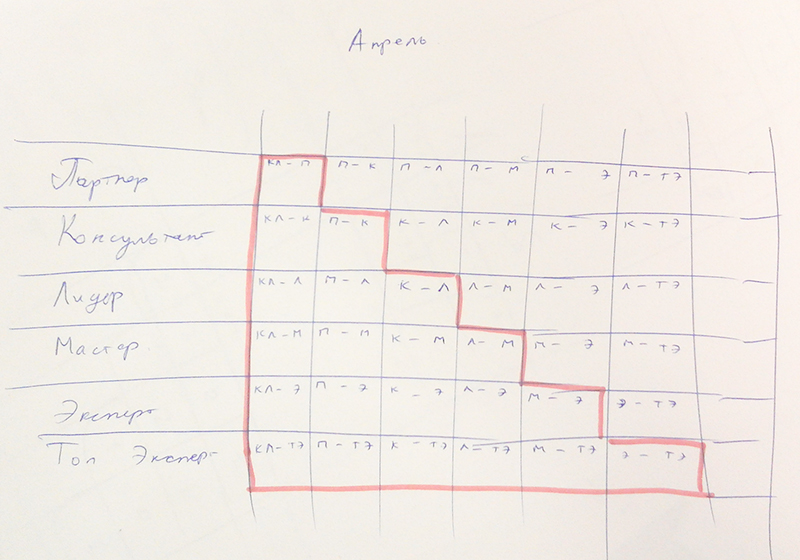 Апрель
Партнер КЛ - П П - К П - Л П - М П - Э П - ТЭ
Консультант КЛ - К П - К К - Л К - М К - Э К - ТЭ
Лидер КЛ - Л П - Л К - Л Л - М Л - Э Л - ТЭ
Мастер КЛ - М П - М К - М Л - М М - Э М - ТЭ
Эксперт КЛ - Э П - Э К - Э Л - Э М - Э Э - ТЭ
Топ Эксперт КЛ - ТЭ П - ТЭ К - ТЭ Л - ТЭ М - ТЭ Э - ТЭ